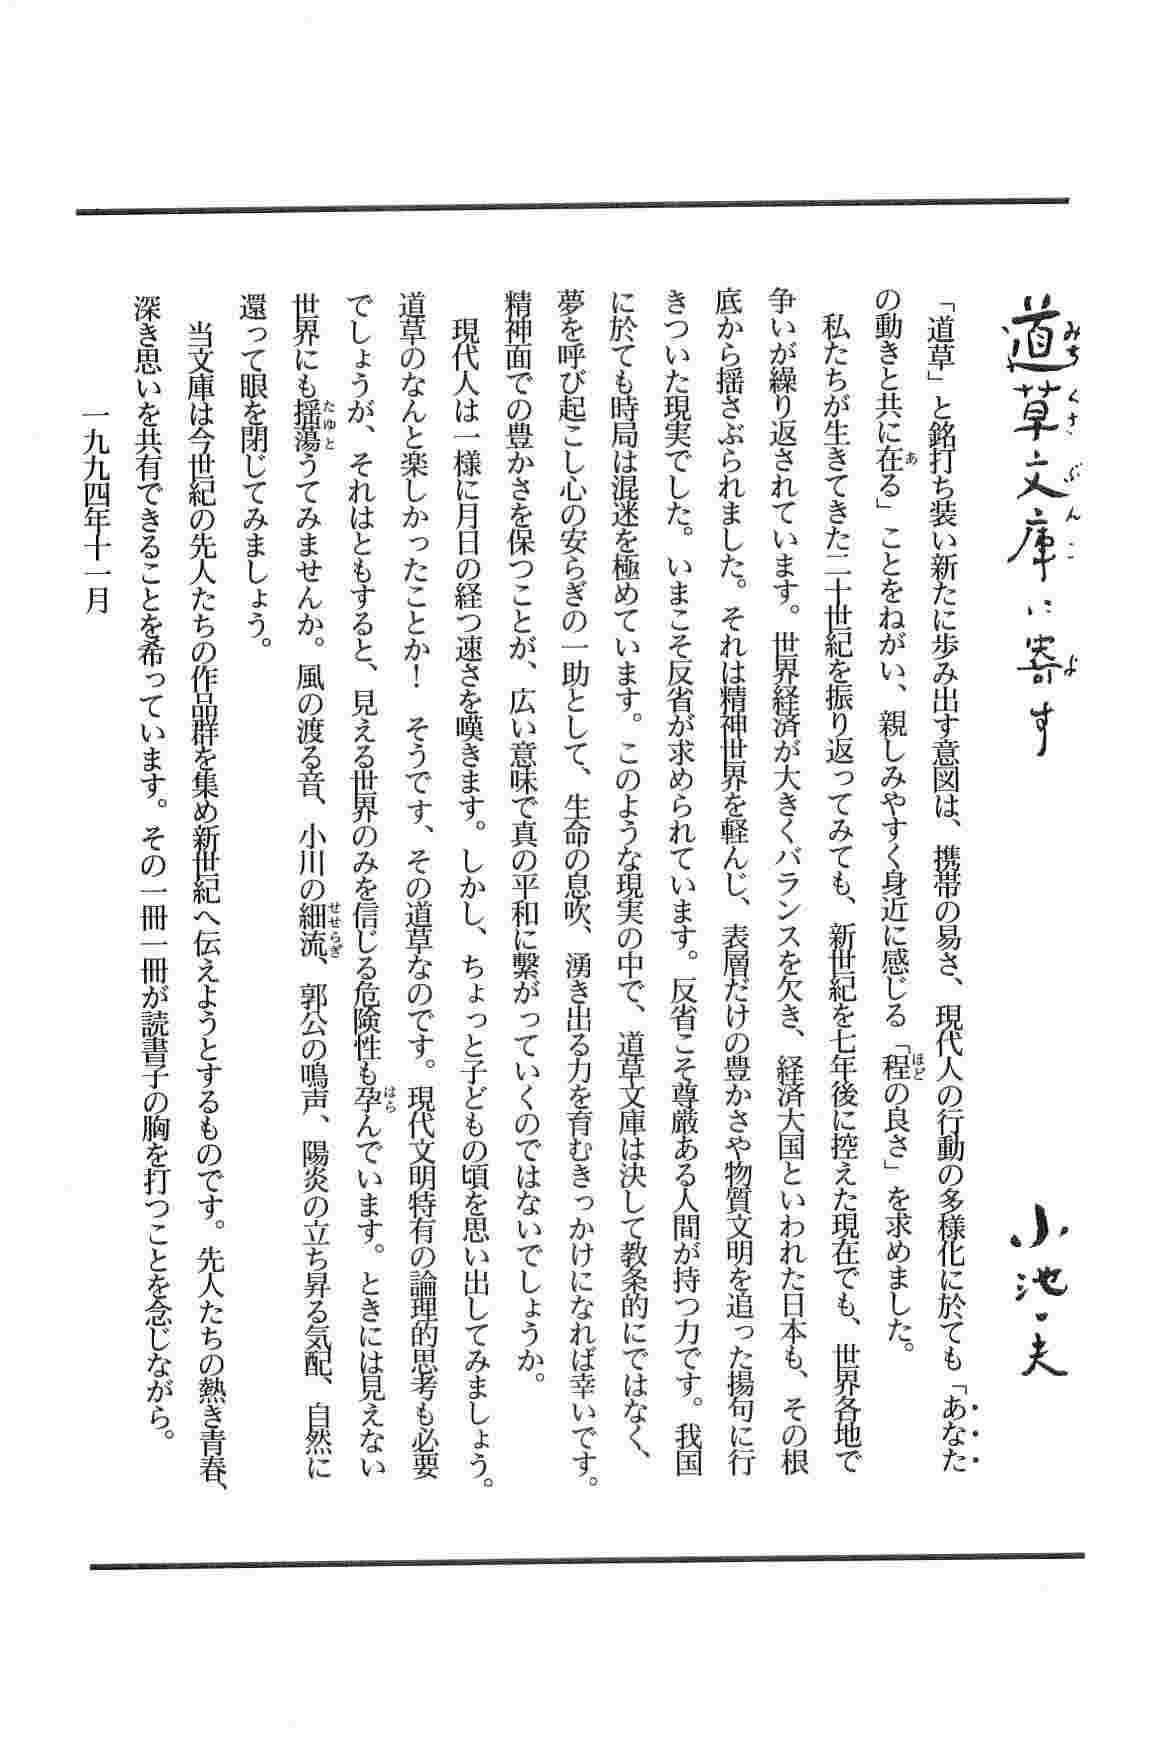 道草文庫に寄す
小池一夫
「道草」と銘打ち装い新たに歩み出す意図は、携帯の易さ、現代人の行動の多様化に於ても「あなた
の動きと共に在る」ことをねがい、親しみやすく身近に感じる「程の良さ」を求めました。
私たちが生きてきた二十世紀を振り返ってみても、新世紀を七年後に控えた現在でも、世界各地で
争いが繰り返されています。世界経済が大きくバランスを欠き、経済大国といわれた日本も、その根
底から揺さぶられました。それは精神世界を軽んじ、表層だけの豊かさや物質文明を追った揚句に行
きついた現実でした。いまこそ反省が求められています。反省こそ尊厳ある人間が持つ力です。我国
に於ても時局は混迷を極めています。このような現実の中で、道草文庫は決して教条的にではなく、
夢を呼び起こし心の安らぎの一助として、生命の息吹、湧き出る力を育むきっかけになれば幸いです。
精神面での豊かさを保つことが、広い意味で真の平和に繋がっていくのではないでしょうか。
現代人は一様に月日の経つ速さを嘆きます。しかし、ちょっと子どもの頃を思い出してみましょう。
道草のなんと楽しかったことか！　そうです、その道草なのです。現代文明特有の論理的思考も必要
でしょうが、それはともすると、見える世界のみを信じる危険性も孕んでいます。ときには見えない
世界にも揺蕩うてみませんか。風の渡る音、小川の細流、郭公の鳴声、陽炎の立ち昇る気配、自然に
還って眼を閉じてみましょう。
当文庫は今世紀の先人たちの作品群を集め新世紀へ伝えようとするものです。先人たちの熱き青春、
深き思いを共有できることを希っています。その一冊一冊が読書子の胸を打つことを念じながら。
一九九四年十一月